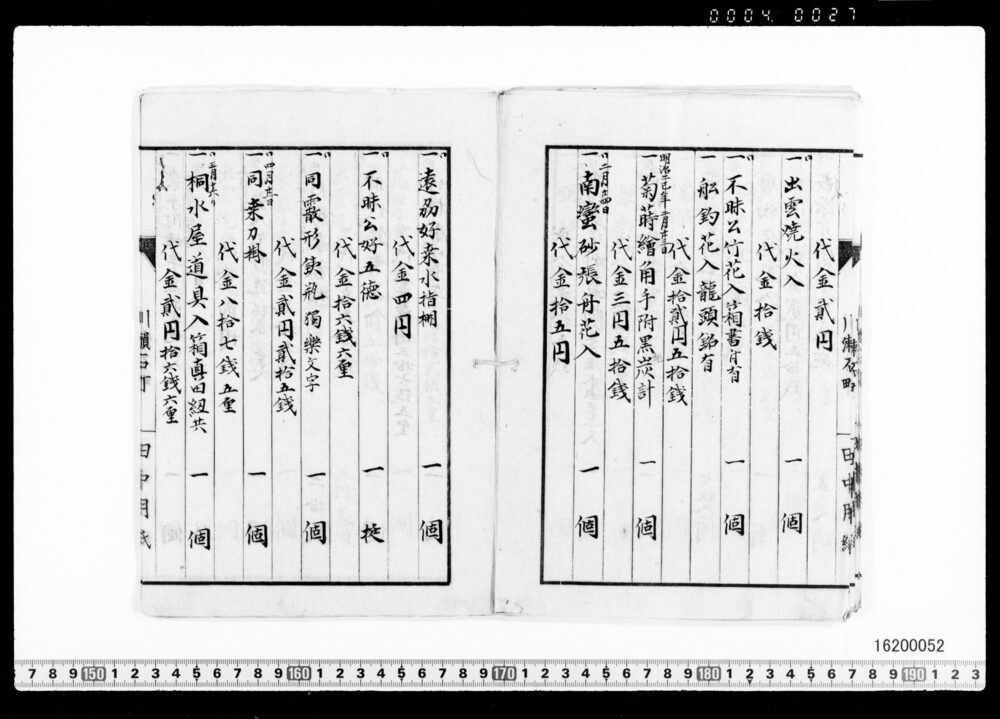 0004 0027
代金貳円
一 出雲焼火入 一 個
代金拾錢
一 不昧公竹花入箱書付有 一 個
一 舩釣花入龍頭銘有
代金拾貳円五拾錢
一 菊蒔繪角手附黒炭計 一 個
代金三円五拾錢
二月廿四日
一 南蠻砂張舟花入 一 個
代金拾五円
川瀬石町 田中用紙
一 遠刕好桒水指棚 一 個
代金四円
一 不昧公好五徳 一 挺
代金拾六錢六厘
一 同霰形鉄瓶獨樂文字 一 個
代金貳円貳拾五錢
一 同桒刀掛 一 個
代金八拾七錢五厘
一 桐水屋道具入箱真田紐共 一 個
代金貳円拾六錢六厘
川瀬石町 田中用紙
16200052
7 8 9 150 1 2 3 4 5 6 7 8 9 160 1 2 3 4 5 6 7 8 9 170 1 2 3 4 5 6 7 8 9 180 1 2 3 4 5 6 7 8 9 190 1 2 3